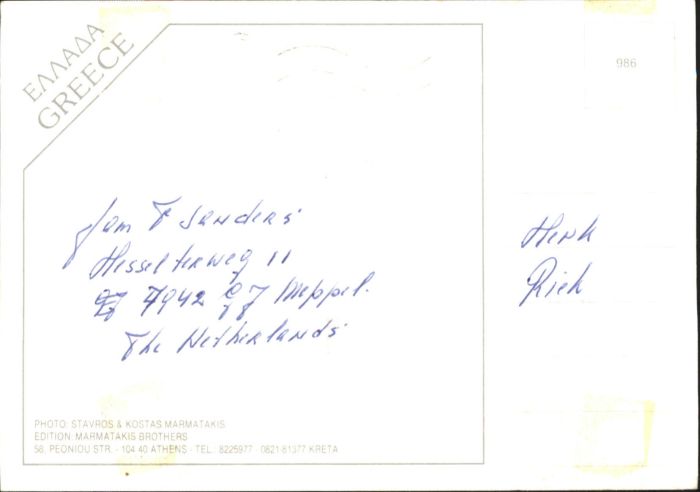 ΕΛΛΑΔΑ
GREECE
986
Jan F Sanders
Hesselterweg 11
7942 GJ Meppel.
The Netherlands
Henk
Riek
PHOTO: STAVROS & KOSTAS MARMATAKIS
EDITION: MARMATAKIS BROTHERS
58, PEONIOU STR. - 104 40 ATHENS - TEL.: 8225977 - 0821-81377 KRETA